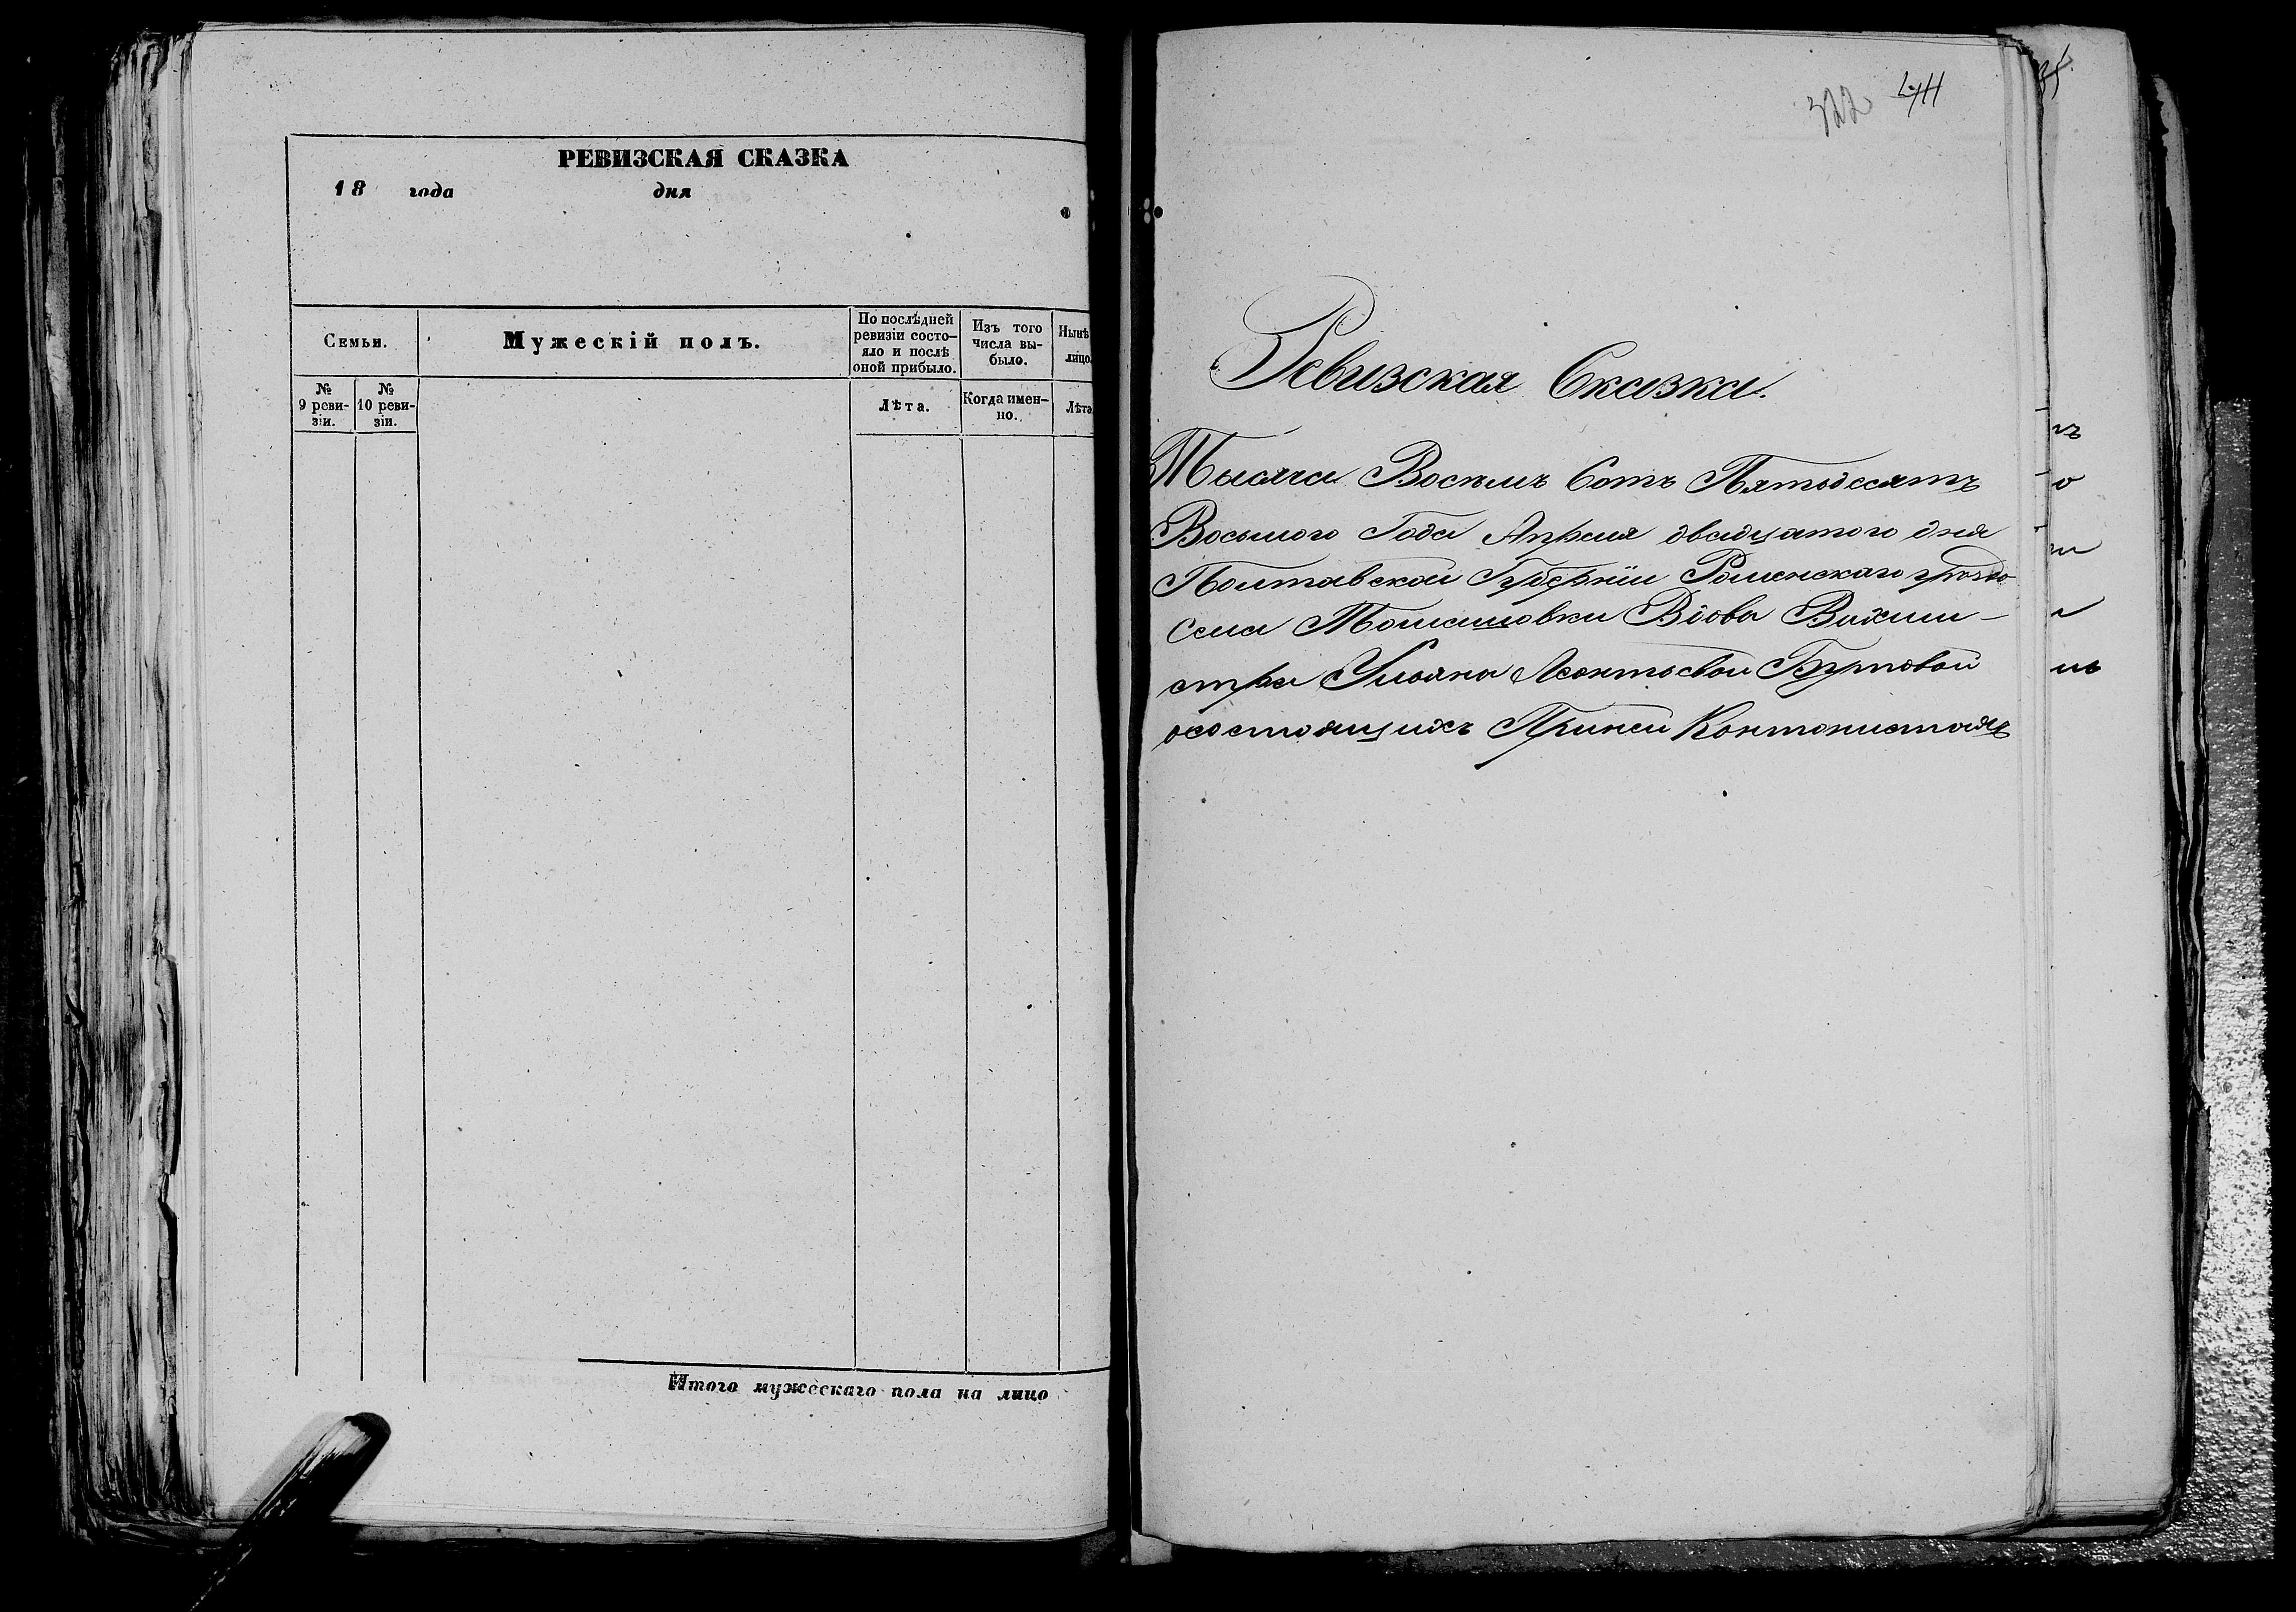 РЕВИЗСКАЯ СКАЗКА
18 года дня
Семьи.
Мужескій полъ.
По послѣдней
ревизіи состо-
яло и послѣ
оной прибыло.
Изъ того
числа вы-
было.
Нынѣ
лицо
№
9 реви-
зіи.
№
10 реви-
зіи.
Лѣта.
Когда имен-
но.
Лѣта
Итого мужескаго пола на лицо
322
Ревизская Сказка.
Тысяча Восемъ Сотъ Пятьдесятъ
Восьмого Года Апреля двадцатого дня
Полтавской Губерніи Роменскаго
Села Томашовки Вдова Вахми-
стра Ульяна Леонтьевои
осостоящихъ Принеи